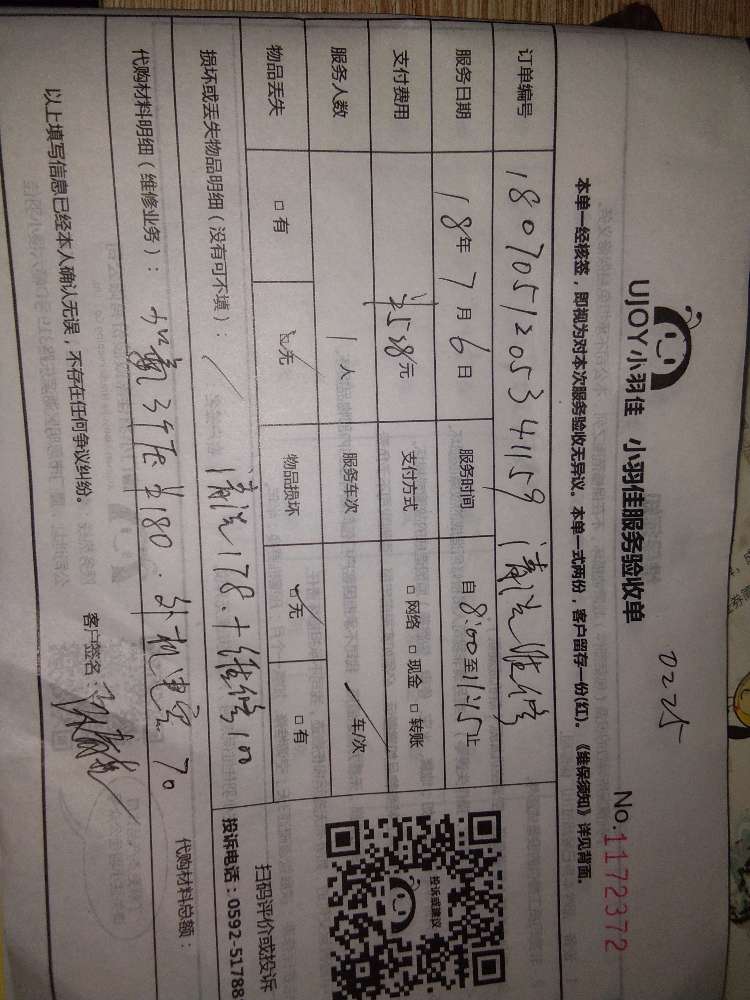 0225
UJOY小羽佳 小羽佳服务验收单
No.1172372
本单一经核签，即视为对本次服务验收无异议。本单一式两份，客户留存一份(红)。《维保须知》详见背面。
订单编号 1807051205341159 清洗维修
服务日期 18年7月6日 服务时间 自8:00至11:45止
支付费用 ¥528元 支付方式 □网络 □现金 □转账
服务人数 1人 服务车次 / 车/次
物品丢失 □有 ☑无 物品损坏 ☑无 □有
损坏或丢失物品明细（没有可不填）： / 清洗178.+维修100
代购材料明细（维修业务）： 加氟3个压¥180. 外机电容70
代购材料总额：
以上填写信息已经本人确认无误，不存在任何争议纠纷。
客户签名：
投诉或建议
扫码评价或投诉
投诉电话：0592-51788